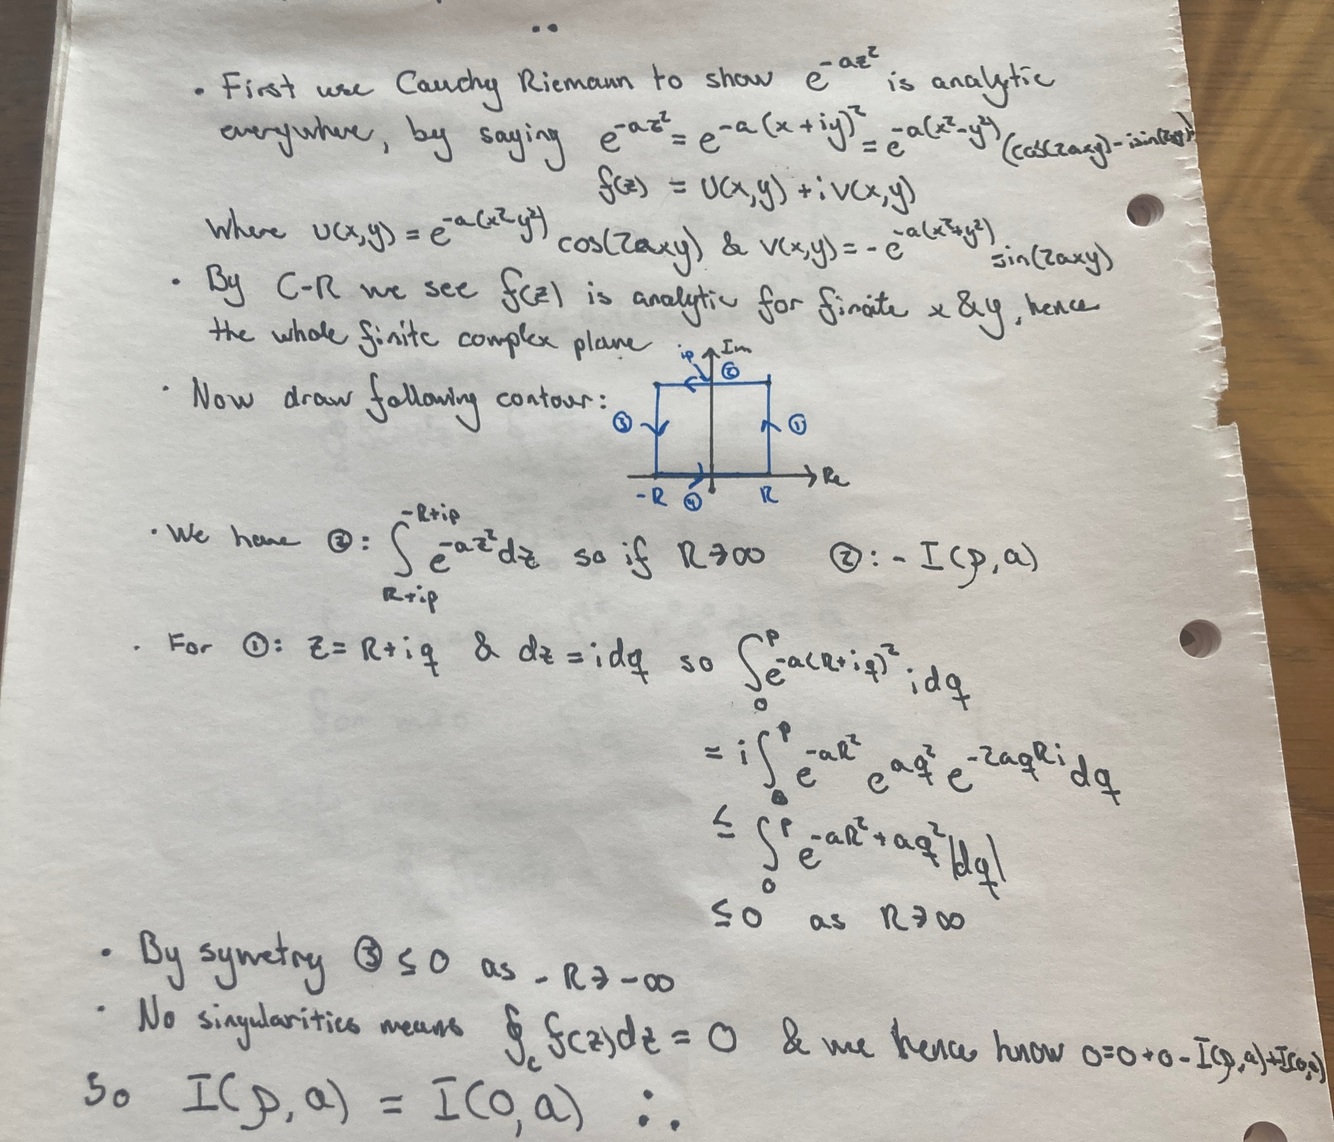 • First use Cauchy Riemann to show e^{-az²} is analytic
everywhere, by saying e^{-az²} = e^{-a(x+iy)²} = e^{-a(x²-y²)}(cos(2axy)-isin(2axy))
f(z) = U(x,y) + i V(x,y)
Where U(x,y) = e^{-a(x²-y²)} cos(2axy) & V(x,y) = -e^{-a(x²+y²)} sin(2axy)
• By C-R we see f(z) is analytic for finite x & y, hence
the whole finite complex plane
• Now draw following contour:
ip Im ②
③ ①
-R ④ R Re
• We have ②: ∫_{R+ip}^{-R+ip} e^{-az²} dz so if R→∞ ②: -I(p,a)
• For ①: z = R+iq & dz = idq so ∫_0^p e^{-a(R+iq)²} idq
= i∫_0^p e^{-aR²} e^{aq²} e^{-2aqRi} dq
≤ ∫_0^p e^{-aR²+aq²} |dq|
≤ 0 as R→∞
• By symetry ③ ≤ 0 as -R→-∞
• No singularities means ∮_c f(z)dz = 0 & we hence know 0=0+0-I(p,a)+I(0,a)
So I(p,a) = I(0,a) ∴